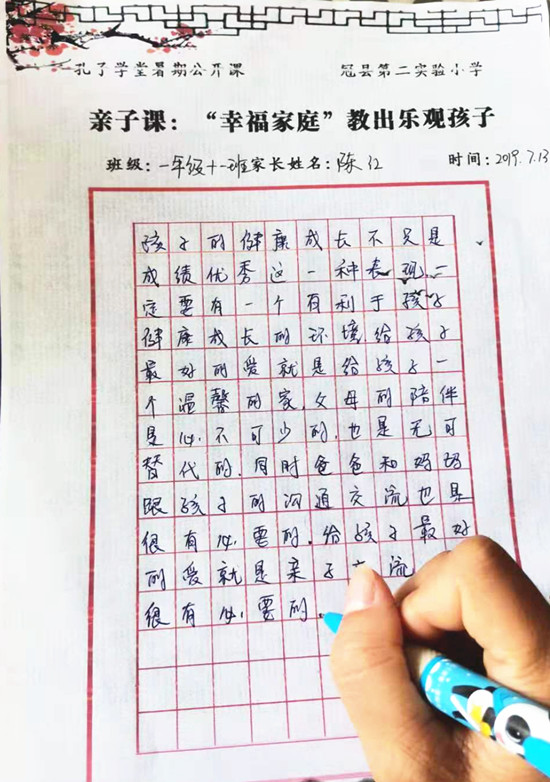 孔子学堂暑期公开课 冠县第二实验小学
亲子课：“幸福家庭”教出乐观孩子
班级：一年级十一班 家长姓名：陈红 时间：2019.7.13
孩子的健康成长不只是
成绩优秀这一种表现.一
定要有一个有利于孩子
健康成长的环境给孩子
最好的爱就是给孩子一
个温馨的家.父母的陪伴
是必不可少的.也是无可
替代的.同时爸爸和妈妈
跟孩子的沟通交流也是
很有必要的.给孩子最好
的爱就是亲子 流
很有必要的.